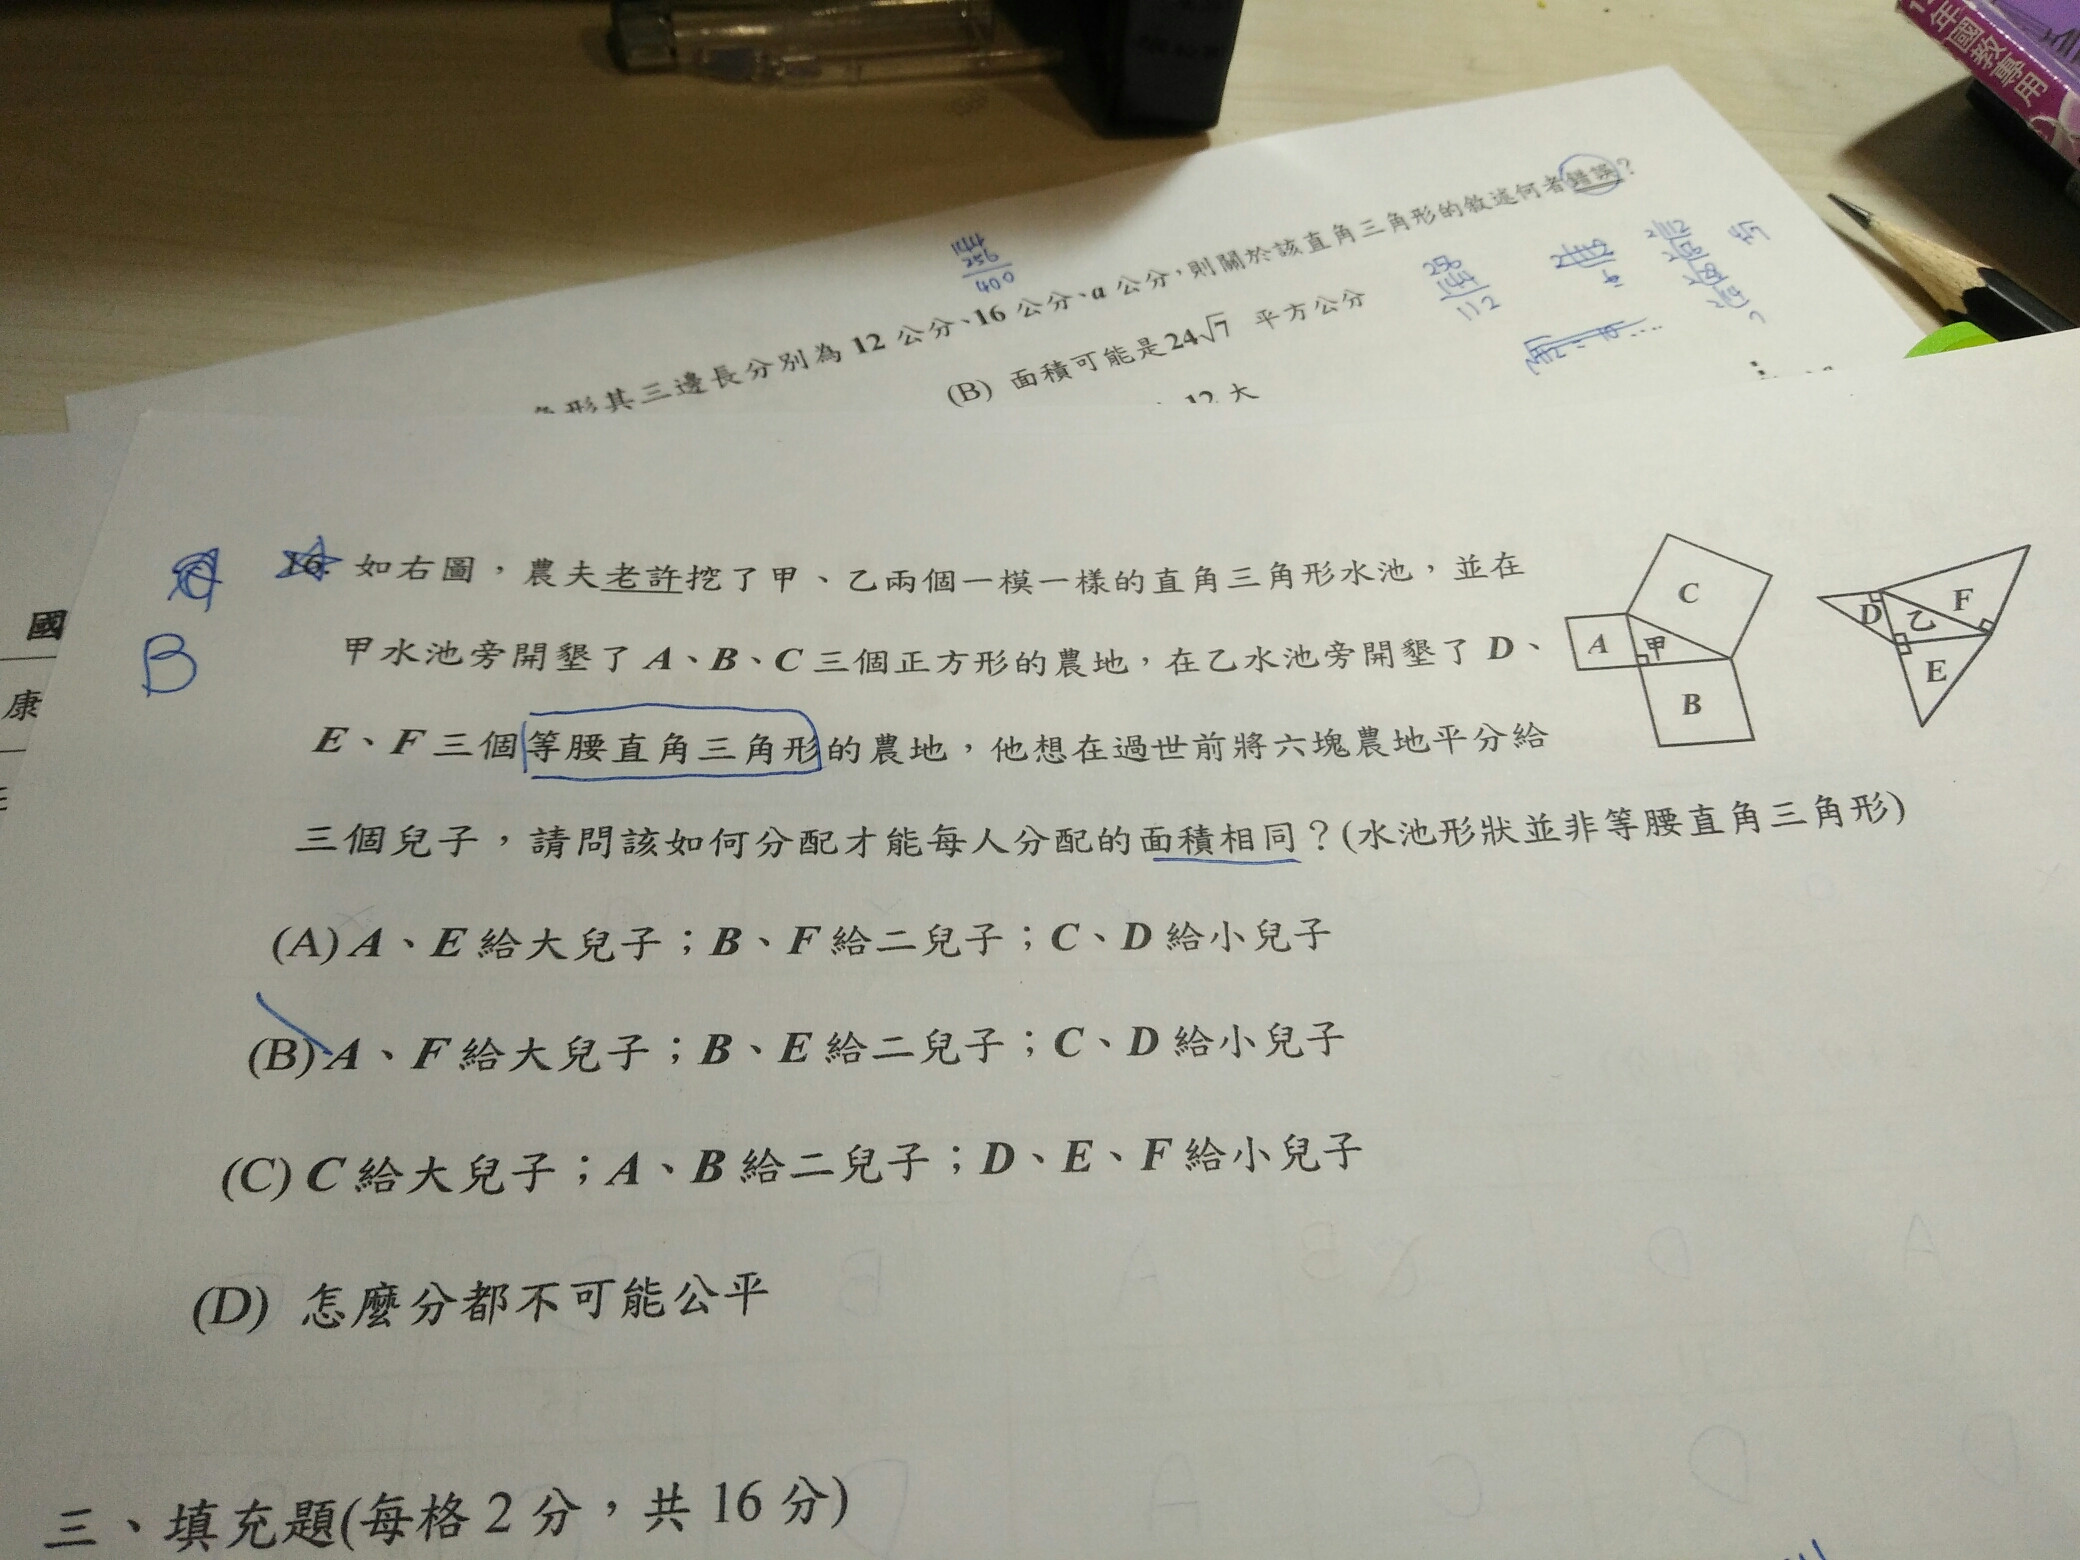 12年國教專用
角形其三邊長分別為 12 公分、16 公分、a 公分,則關於該直角三角形的敘述何者錯誤?
256
400
(B) 面積可能是 24√7 平方公分
256
144
112
12 大
國
康
B
16. 如右圖,農夫老許挖了甲、乙兩個一模一樣的直角三角形水池,並在
甲水池旁開墾了 A、B、C 三個正方形的農地,在乙水池旁開墾了 D、
E、F 三個等腰直角三角形的農地,他想在過世前將六塊農地平分給
三個兒子,請問該如何分配才能每人分配的面積相同?(水池形狀並非等腰直角三角形)
C
A
甲
B
D
乙
F
E
(A) A、E 給大兒子;B、F 給二兒子;C、D 給小兒子
(B) A、F 給大兒子;B、E 給二兒子;C、D 給小兒子
(C) C 給大兒子;A、B 給二兒子;D、E、F 給小兒子
(D) 怎麼分都不可能公平
三、填充題(每格 2 分,共 16 分)